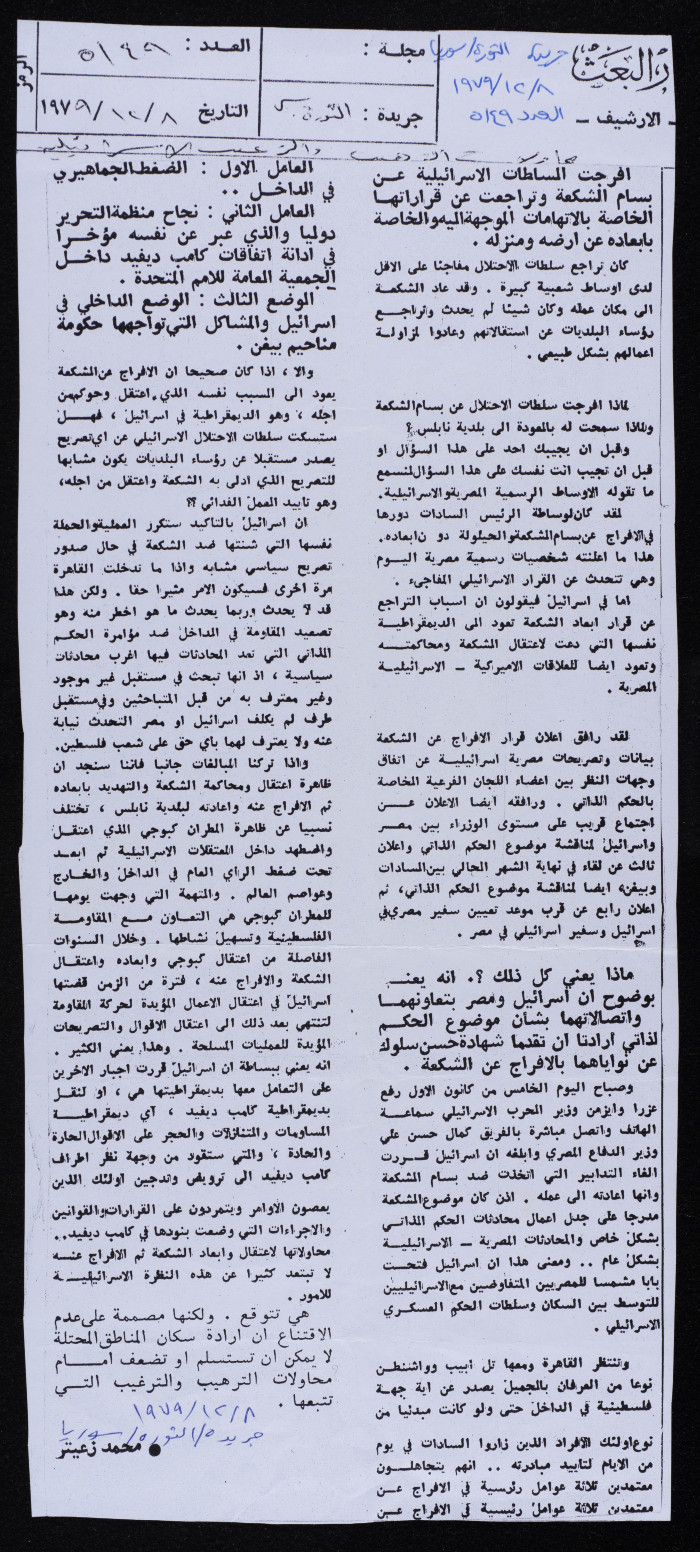 البعث
جريدة الثورة/سوريا
١٩٧٩/١٢/٨
العدد ٥١٤٩
الارشيف ـ
مجلة :
العدد :
جريدة : الثورة
التاريخ ١٩٧٩/١٢/٨
الرمز
افرجت السلطات الاسرائيلية عن
بسام الشكعة وتراجعت عن قراراتها
الخاصة بالاتهامات الموجهة اليه والخاصة
بابعاده عن ارضه ومنزله .
كان تراجع سلطات الاحتلال مفاجئا على الاقل
لدى اوساط شعبية كبيرة . وقد عاد الشكعة
الى مكان عمله وكان شيئا لم يحدث وتراجع
رؤساء البلديات عن استقالاتهم وعادوا لمزاولة
اعمالهم بشكل طبيعي .
لماذا افرجت سلطات الاحتلال عن بسام الشكعة
ولماذا سمحت له بالعودة الى بلدية نابلس ؟
وقبل ان يجيبك احد على هذا السؤال او
قبل ان تجيب انت نفسك على هذا السؤال لنسمع
ما تقوله الاوساط الرسمية المصرية والاسرائيلية.
لقد كان لوساطة الرئيس السادات دورها
في الافراج عن بسام الشكعة والحيلولة دو ن ابعاده.
هذا ما اعلنته شخصيات رسمية مصرية اليوم
وهي تتحدث عن القرار الاسرائيلي المفاجىء .
اما في اسرائيل فيقولون ان اسباب التراجع
عن قرار ابعاد الشكعة تعود الى الديمقراطية
نفسها التي دعت لاعتقال الشكعة ومحاكمته
وتعود ايضا للعلاقات الاميركية ـ الاسرائيلية
المصرية .
لقد رافق اعلان قرار الافراج عن الشكعة
بيانات وتصريحات مصرية اسرائيلية عن اتفاق
وجهات النظر بين اعضاء اللجان الفرعية الخاصة
بالحكم الذاتي . ورافقه ايضا الاعلان عن
اجتماع قريب على مستوى الوزراء بين مصر
واسرائيل لمناقشة موضوع الحكم الذاتي واعلان
ثالث عن لقاء في نهاية الشهر الحالي بين السادات
وبيغن، ايضا لمناقشة موضوع الحكم الذاتي، ثم
اعلان رابع عن قرب موعد تعيين سفير مصري في
اسرائيل وسفير اسرائيلي في مصر .
ماذا يعني كل ذلك ؟. انه يعني
بوضوح ان اسرائيل ومصر بتعاونهما
واتصالاتهما بشان موضوع الحكم
لذاتي ارادتا ان تقدما شهادة حسن سلوك
عن نواياهما بالافراج عن الشكعة .
وصباح اليوم الخامس من كانون الاول رفع
عزرا وايزمن وزير الحرب الاسرائيلي سماعة
الهاتف واتصل مباشرة بالفريق كمال حسن علي
وزير الدفاع المصري وابلغه ان اسرائيل قررت
الغاء التدابير التي اتخذت ضد بسام الشكعة
وانها اعادته الى عمله . اذن كان موضوع الشكعة
مدرجا على جدل اعمال محادثات الحكم الذاتي
بشكل خاص والمحادثات المصرية ـ الاسرائيلية
بشكل عام .. ومعنى هذا ان اسرائيل فتحت
بابا مشمسا للمصريين المتفاوضين مع الاسرائيليين
للتوسط بين السكان وسلطات الحكم العسكري
الاسرائيلي .
وتنتظر القاهرة ومعها تل ابيب وواشنطن
نوعا من العرفان بالجميل يصدر عن اية جهة
فلسطينية في الداخل حتى ولو كانت مبدئيا من
نوع اولئك الافراد الذين زاروا السادات في يوم
من الايام لتاييد مبادرته .. انهم يتجاهلون
معتمدين ثلاثة عوامل رئرسية في الافراج عن
معتمدين ثلاثة عوامل رئيسية في الافراج عن
العامل الاول : الضغط الجماهيري
في الداخل ..
العامل الثاني : نجاح منظمة التحرير
دوليا والذي عبر عن نفسه مؤخرا
في ادانة اتفاقات كامب ديفيد داخل
الجمعية العامة للامم المتحدة .
الوضع الثالث : الوضع الداخلي في
اسرائيل والمشاكل التي تواجهها حكومة
مناحيم بيغن .
والا ، اذا كان صحيحا ان الافراج عن الشكعة
يعود الى السبب نفسه الذي اعتقل وحوكم من
اجله ، وهو الديمقراطية في اسرائيل ، فهل
ستسكت سلطات الاحتلال الاسرائيلي عن اي تصريح
يصدر مستقبلا عن رؤساء البلديات يكون مشابها
للتصريح الذي ادلى به الشكعة واعتقل من اجله،
وهو تاييد العمل الفدائي ؟؟
ان اسرائيل بالتاكيد ستكرر العملية والحملة
نفسها التي شنتها ضد الشكعة في حال صدور
تصريح سياسي مشابه واذا ما تدخلت القاهرة
مرة اخرى فسيكون الامر مثيرا حقا . ولكن هذا
قد لا يحدث وربما يحدث ما هو اخطر منه وهو
تصعيد المقاومة في الداخل ضد مؤامرة الحكم
الذاتي التي تعد المحادثات فيها اغرب محادثات
سياسية ، اذ انها تبحث في مستقبل غير موجود
وغير معترف به من قبل المتباحثين وفي مستقبل
طرف لم يكلف اسرائيل او مصر التحدث نيابة
عنه ولا يعترف لهما باي حق على شعب فلسطين.
واذا تركنا المبالغات جانبا فاننا سنجد ان
ظاهرة اعتقال ومحاكمة الشكعة والتهديد بابعاده
ثم الافراج عنه واعادته لبلدية نابلس ، تختلف
نسبيا عن ظاهرة المطران كبوجي الذي اعتقل
واضطهد داخل المعتقلات الاسرائيلية ثم ابعد
تحت ضغط الراي العام في الداخل والخارج
وعواصم العالم . والتهمة التي وجهت يومها
للمطران كبوجي هي التعاون مع المقاومة
الفلسطينية وتسهيل نشاطها . وخلال السنوات
الفاصلة من اعتقال كبوجي وابعاده واعتقال
الشكعة والافراج عنه ، فترة من الزمن قضتها
اسرائيل في اعتقال الاعمال المؤيدة لحركة المقاومة
لتنتهي بعد ذلك الى اعتقال الاقوال والتصريحات
المؤيدة للعمليات المسلحة . وهذا يعني الكثير .
انه يعني ببساطة ان اسرائيل قررت اجبار الاخرين
على التعامل معها بديمقراطيتها هي ، او لنقل
بديمقراطية كامب ديفيد ، اي ديمقراطية
المساومات والتنازلات والحجر على الاقوال الحارة
والحادة ، والتي ستقود من وجهة نظر اطراف
كامب ديفيد الى ترويض وتدجين اولئك الذين
يعصون الاوامر ويتمردون على القرارات والقوانين
والاجراءات التي وضعت بنودها في كامب ديفيد..
محاولاتها لاعتقال وابعاد الشكعة ثم الافراج عنه
لا تبتعد كثيرا عن هذه النظرة الاسرائيلية
للامور .
هي تتوقع . ولكنها مصممة على عدم
الاقتناع ان ارادة سكان المناطق المحتلة
لا يمكن ان تستسلم او تضعف امام
محاولات الترهيب والترغيب التي
تتبعها .
١٩٧٩/١٢/٨
جريدة/الثورة/سوريا
● محمد زعيتر